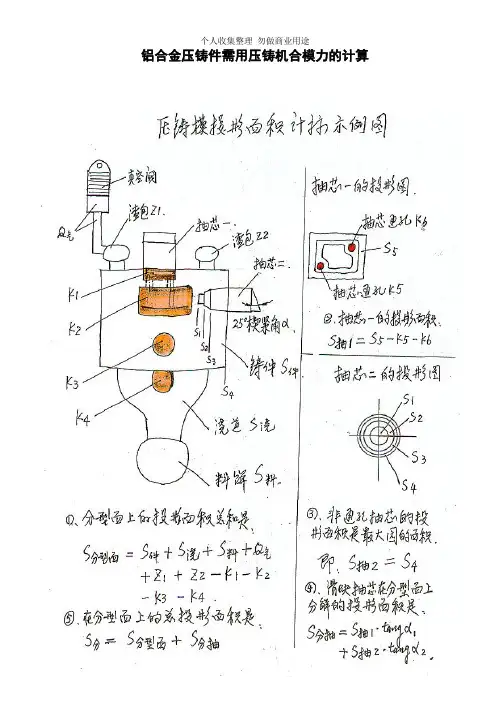 个人收集整理 勿做商业用途
铝合金压铸件需用压铸机合模力的计算
压铸模投形面积计标示例图
真空阀
Q气
渣包Z1.
抽芯一.
渣包Z2
抽芯二.
K1
K2
K3
K4
S1
S2
S3
S4
25°楔紧角α.
铸件S件.
浇道S浇
料饼S料.
①、分型面上的投影面积总和是、
S分型面 = S件 + S浇 + S料 + Q气
+ Z1 + Z2 - K1 - K2
- K3 - K4 .
⑤、在分型面上的总投形面积是、
S分 = S分型面 + S分抽
抽芯一的投形图.
抽芯通孔K6
S5
抽芯通孔K5
②、抽芯一的投形面积.
S抽1 = S5 - K5 - K6
抽芯二的投形图
S1
S2
S3
S4
③、非通孔抽芯的投
形面积是最大园的面积.
即、S抽2 = S4
④、滑块抽芯在分型面上
分解的投形面积是、
S分抽 = S抽1·tangα1
+ S抽2·tangα2 。